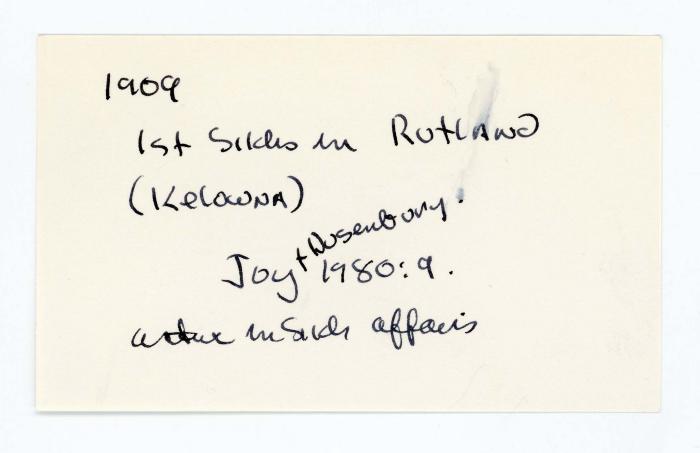 1909
1st Sikhs in RUTLAND
(KELOWNA)
Joy + Dusenbury.
1980:9.
active in Sikh affairs